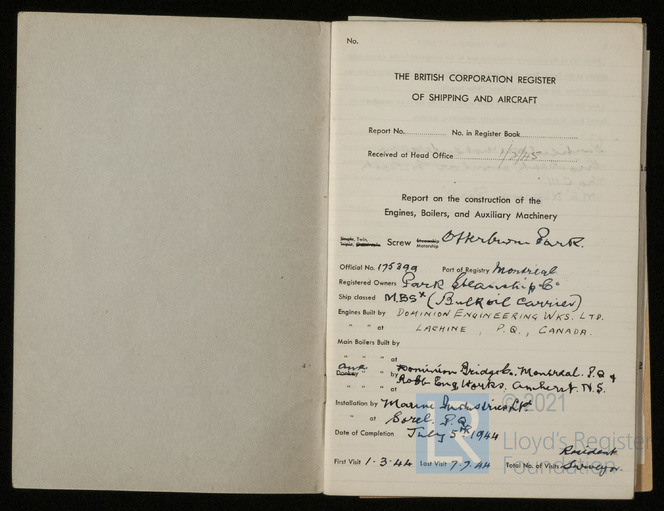 No.
THE BRITISH CORPORATION REGISTER
OF SHIPPING AND AIRCRAFT
Report No. No. in Register Book
Received at Head Office 1/3/45
Report on the construction of the
Engines, Boilers, and Auxiliary Machinery
Single, Twin, Screw Steamship Motorship Otterburn Park.
Official No. 175399 Port of Registry Montreal
Registered Owners Park Steamship Co
Ship classed M.BS* (Bulk oil Carrier)
Engines Built by DOMINION ENGINEERING WKS. LTD.
" " at LACHINE, P.Q., CANADA.
Main Boilers Built by
" " at
Aux Donkey " by Dominion Bridge Co. Montreal. P.Q &
" " at Robb Eng Works. Amherst N.S.
Installation by Marine Industries Ltd
" at Sorel. P.Q.
Date of Completion July 5th 1944
First Visit 1.3.44 Last Visit 7.7.44 Total No. of Visits Resident Surveyor.
© 2021
Lloyd's Register
Foundation
LR